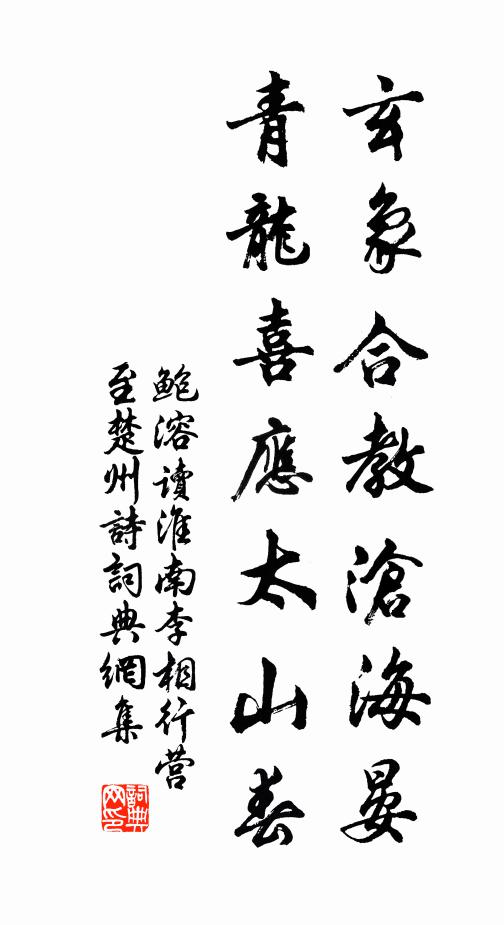 玄象合教滄海晏
青龍喜應太山春
鮑溶讀淮南李相行营
至楚州詩詞典網集
詞典
网印